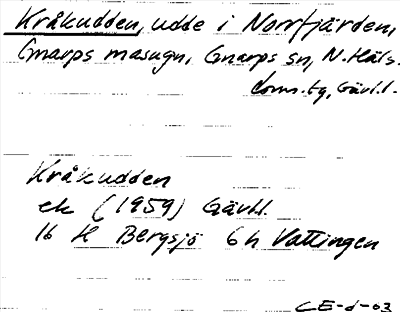 Kråkudden, udde i Norrfjärden,
Gnarps masugn, Gnarps sn, N. Häls.
doms.tg, Gävl.l.
Kråkudden
ek (1959) Gävl.l.
16 H Bergsjö 6h Vattingen
CE-d-03